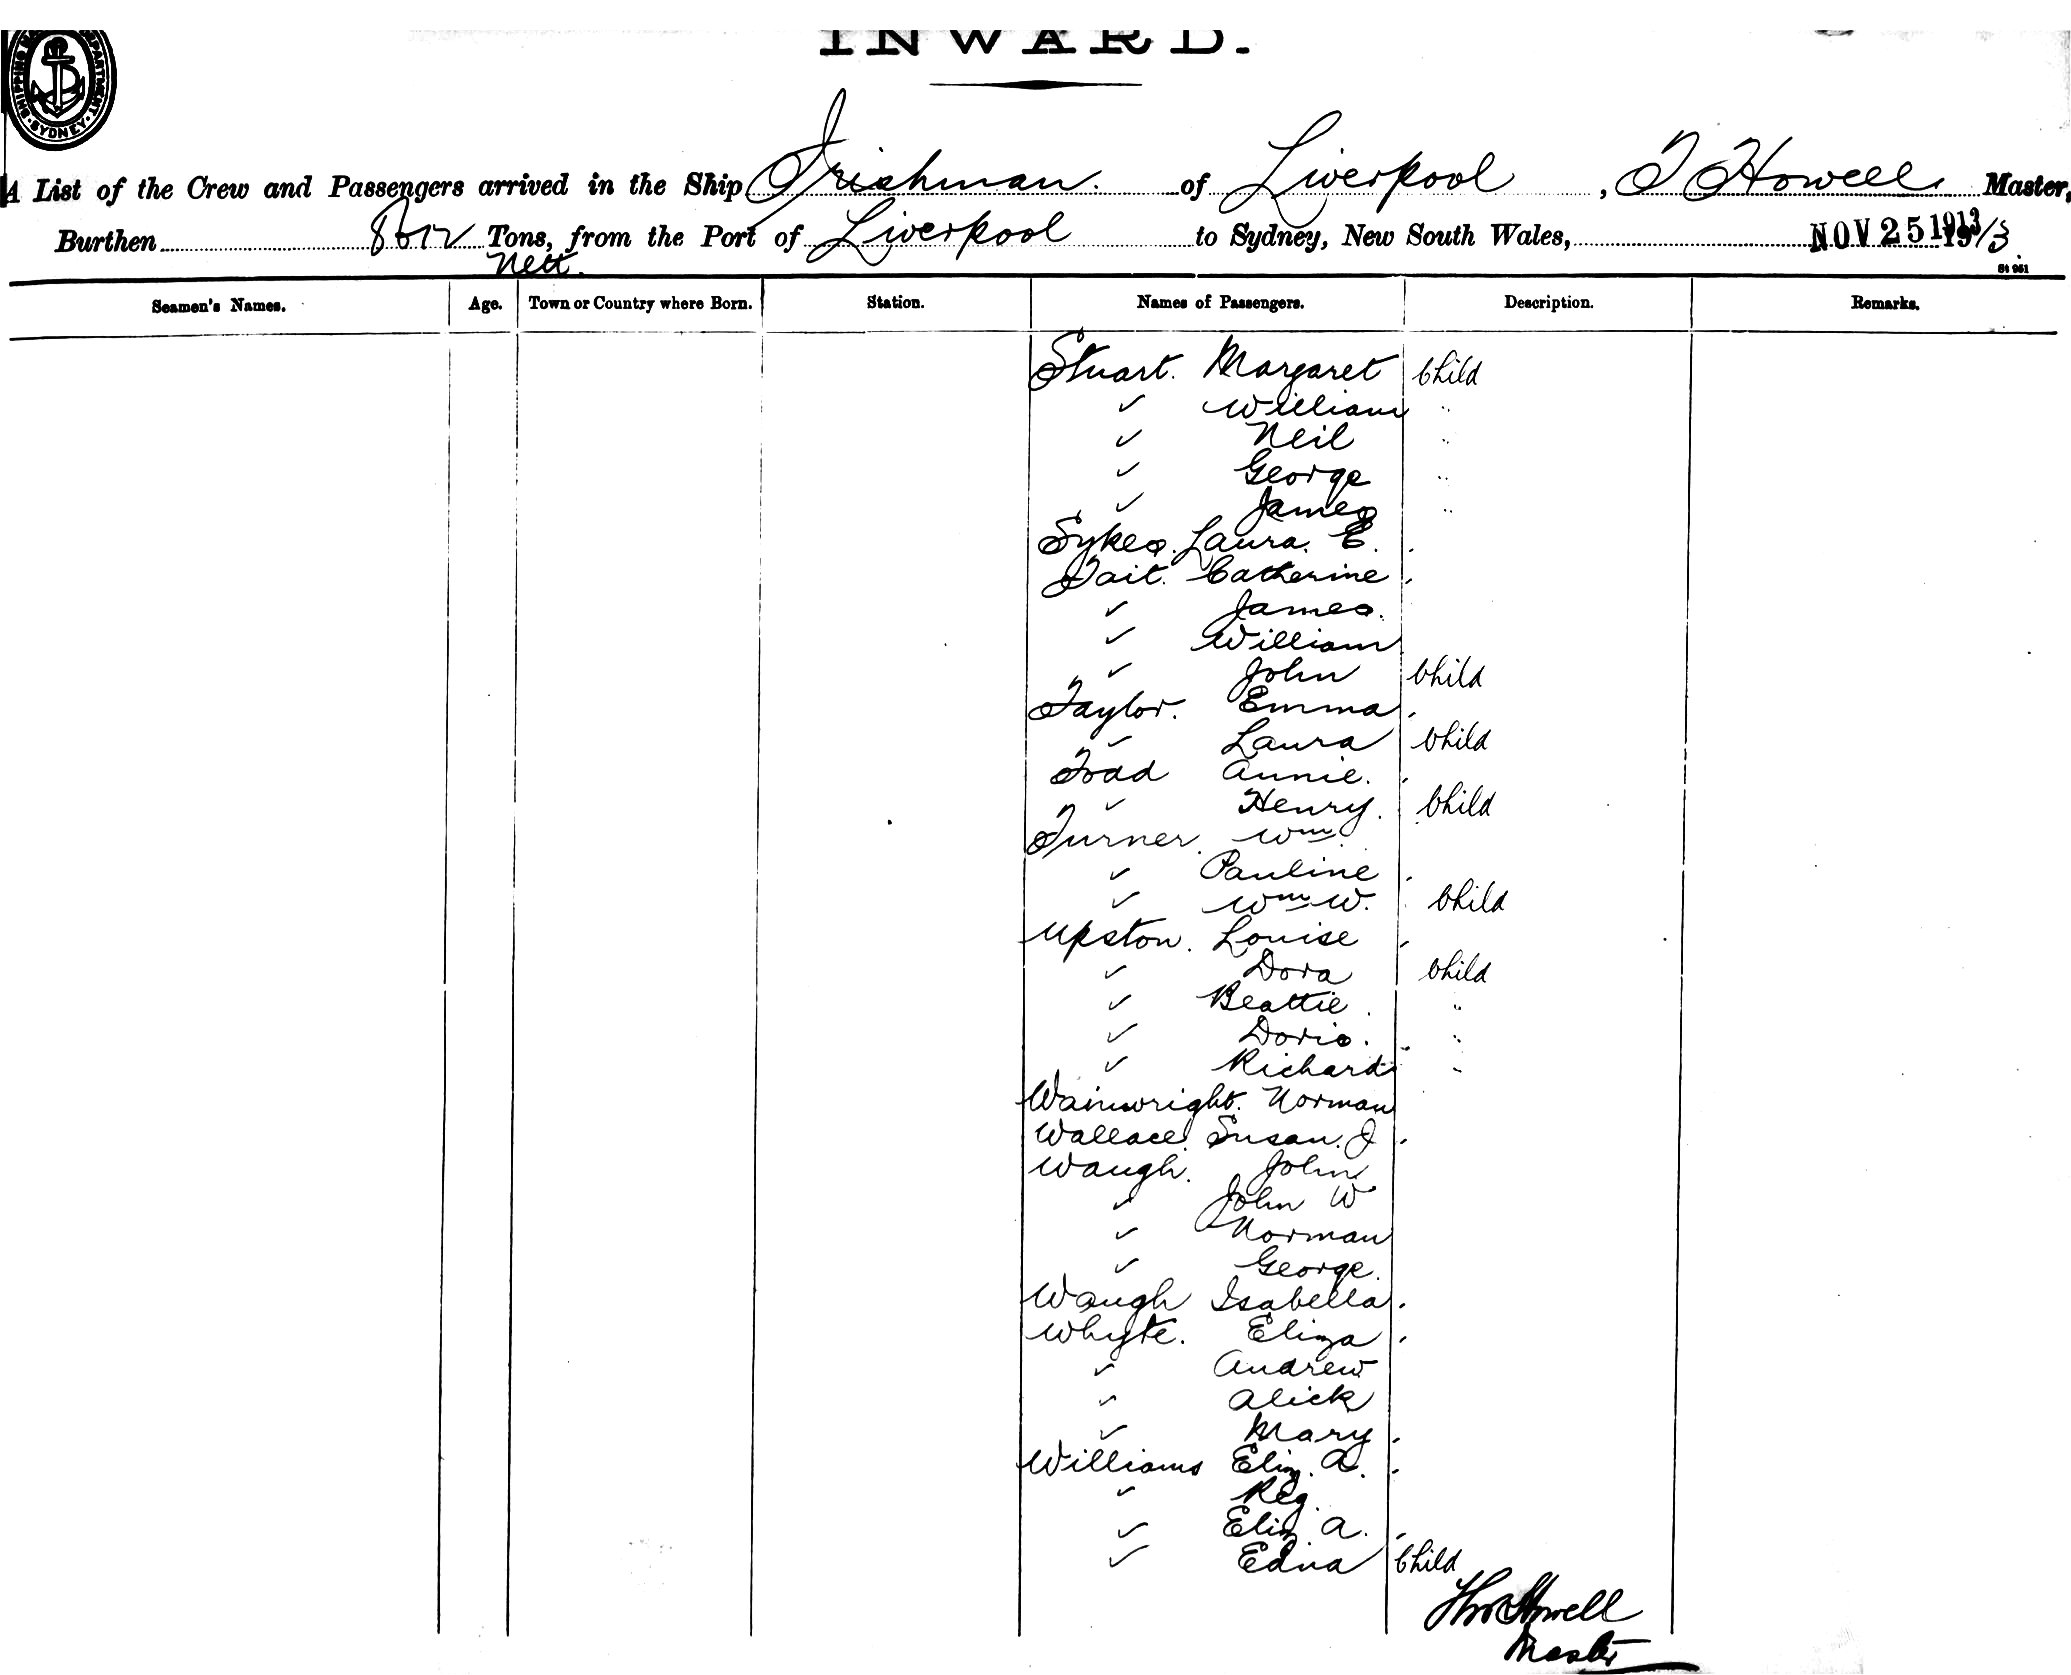 INWARD.
SYDNEY
A List of the Crew and Passengers arrived in the Ship Irishman. of Liverpool, T Howell. Master,
Burthen Tons, from the Port of Liverpool to Sydney, New South Wales, NOV 25 1913 191 3.
Nett.
St 951
Seamen's Names. Age. Town or Country where Born. Station. Names of Passengers. Description. Remarks.
Stuart. Margaret Child
✓ William "
✓ Neil "
✓ George "
✓ James "
Sykes. Laura. E.
Tait. Catherine
✓ James.
✓ William
✓ John Child
Taylor. Emma
✓ Laura Child
Toad Annie.
✓ Henry. Child
Turner. Wm
✓ Pauline
✓ Wm W. Child
Upston. Louise
✓ Dora Child
✓ Beattie "
✓ Doris. "
✓ Richard "
Wainwright. Norman
Wallace. Susan. J
Waugh. John
✓ John W
✓ Norman
✓ George.
Waugh Isabella.
Whyte. Eliza
✓ Andrew
✓ Alick
✓ Mary
Williams Eliz. A.
✓ Reg.
✓ Eliz A.
✓ Edna Child
Thos Howell
Master